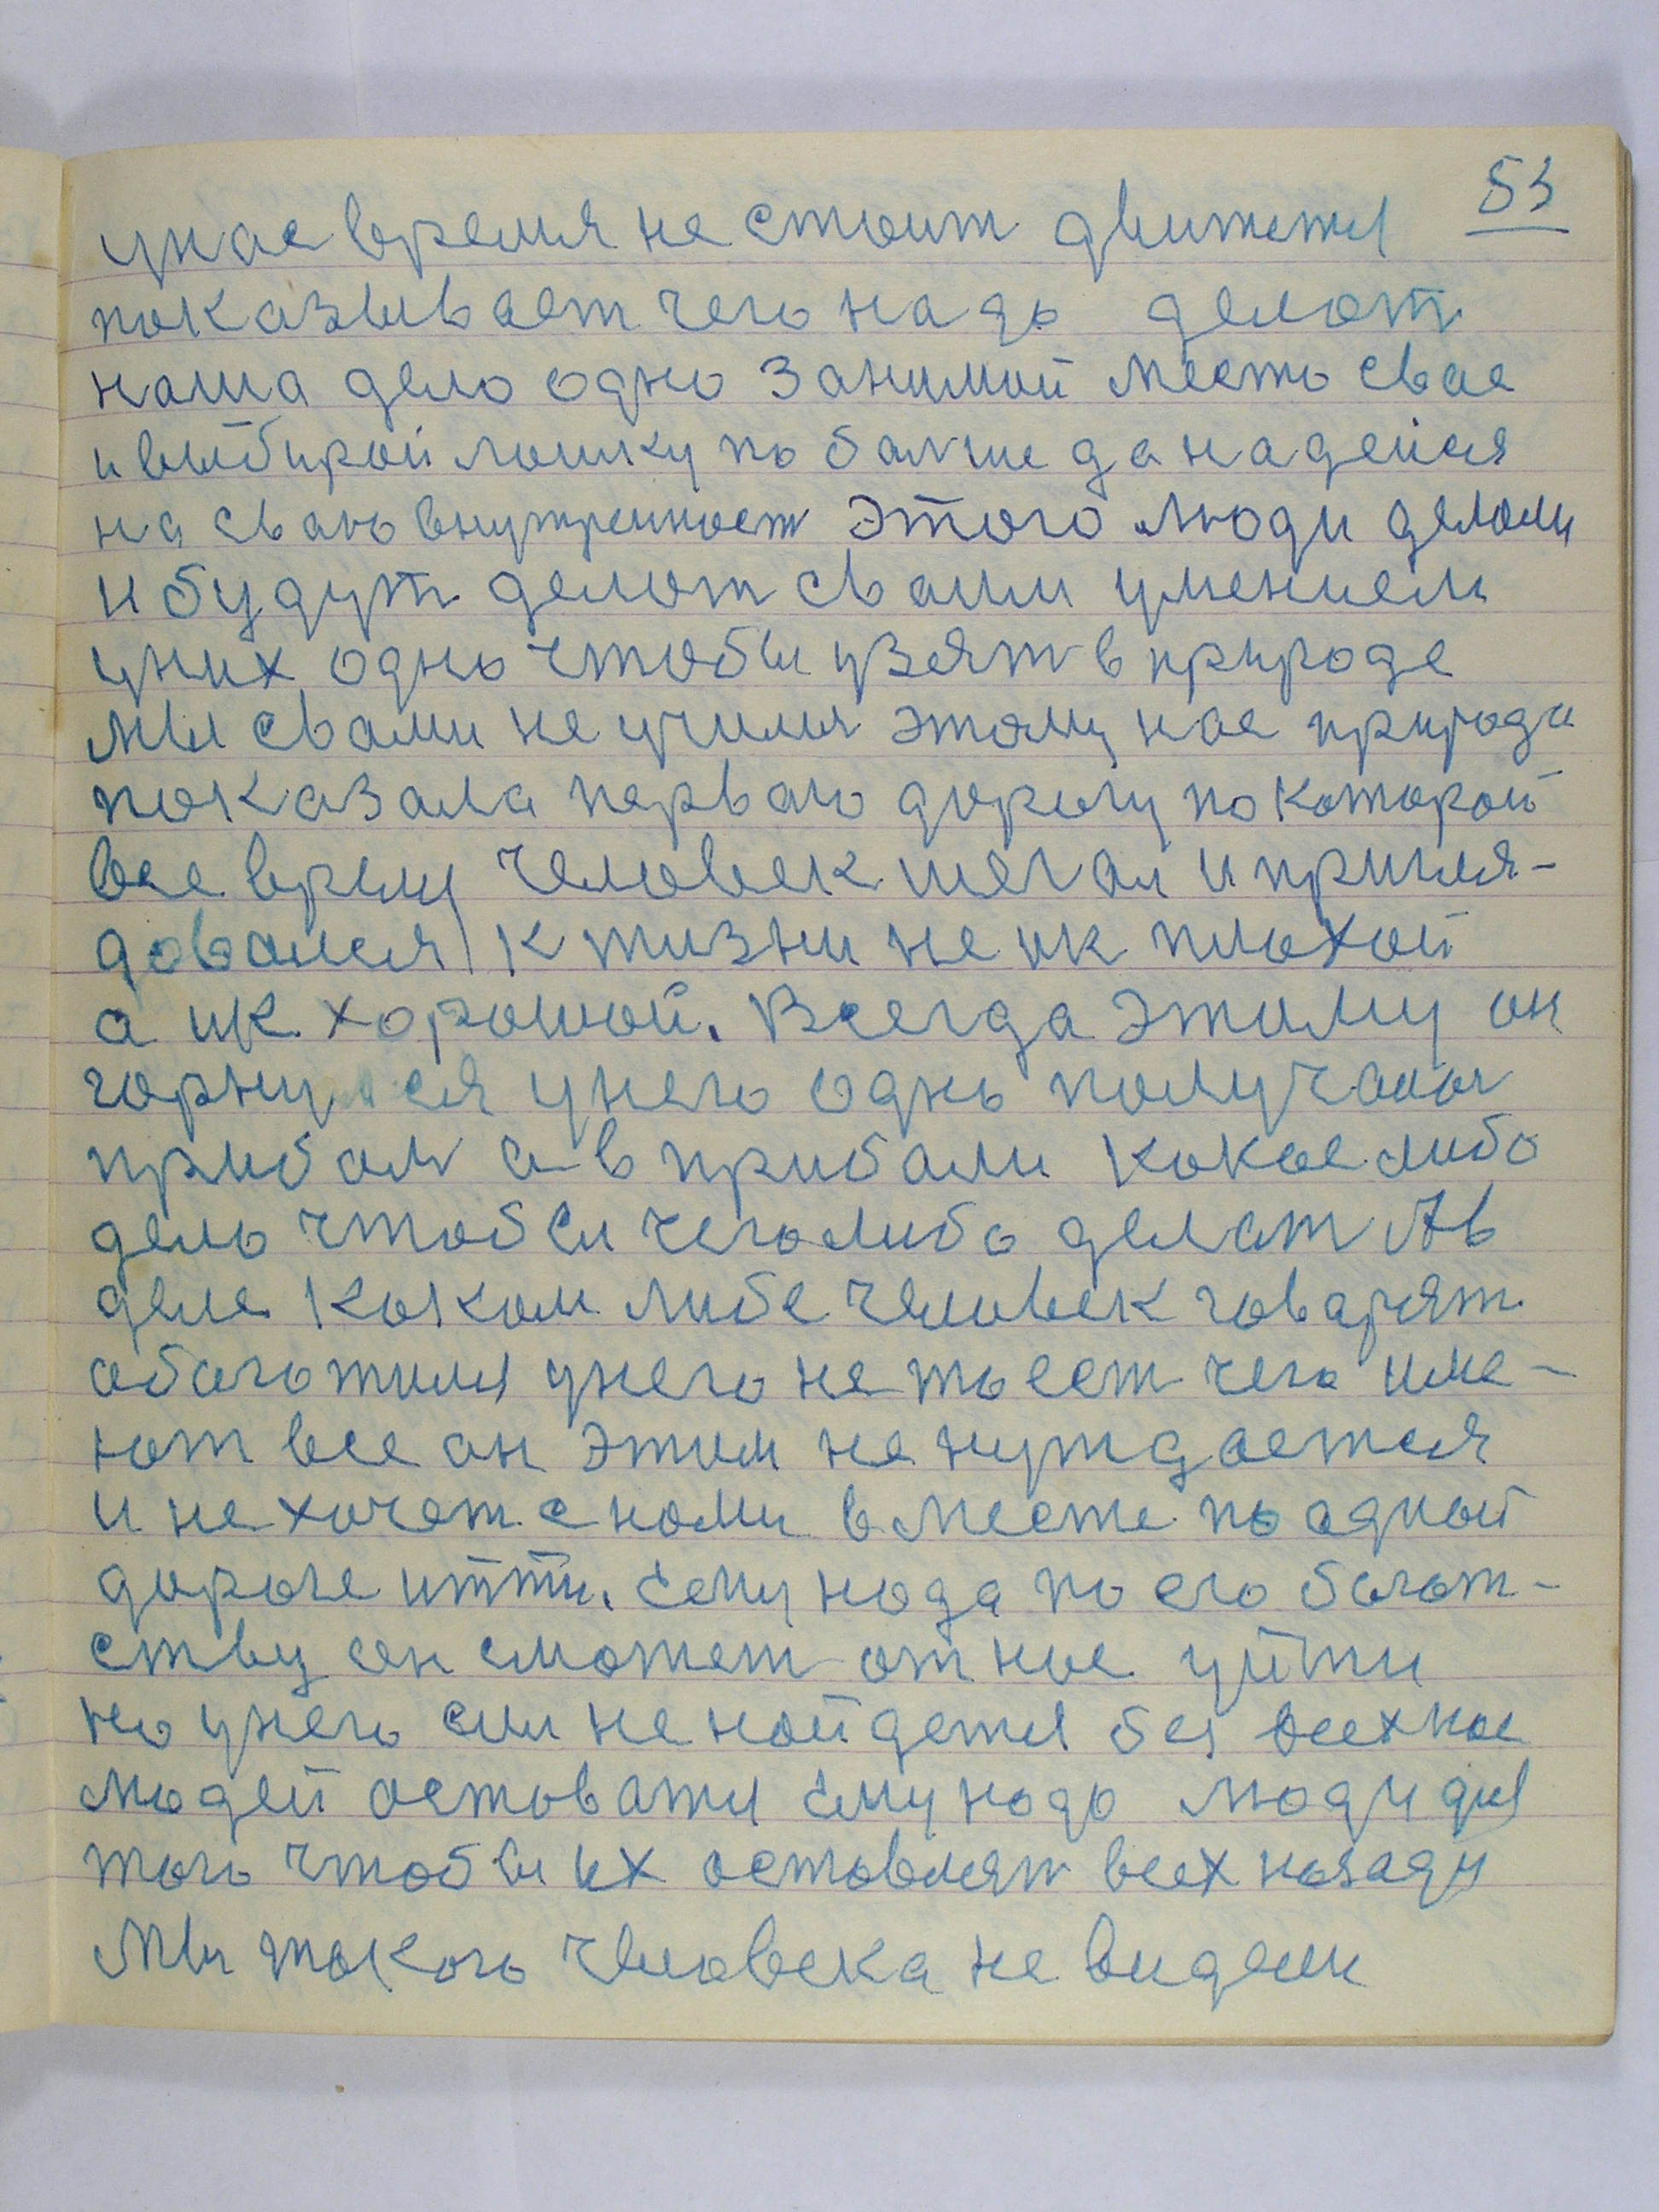 53
унас время не стоит движется
показывает чего надо делат
наша дело одно занимай место свае
и выбирай лошку по балше да надейся
на сваю внутренност этого люди делали
и будут делат сваим умением
у них одно чтобы узят в природе
мы свами не учился этаму нас природа
показала перваю дорогу по которой
все время человек шегал и пригля-
довался к жизни не ик плохой
а ик хорошой. Всегда этиму он
горнулся унего одно получалос
прибал а в прибали какое либо
дело чтобы чеголибо делат Ав
деле каком либе человек говарят
абагатился унего не то ест чего име-
ют все он этим не нуждается
и не хочет снами вместе по адной
дороге итти. Ему нада по его багат-
ству он сможет от нас уйти
но унего сил не найдется без всех нас
людей оставатся Ему надо люди для
того чтобы их оставлят всех назади
Мы такого человека не видели